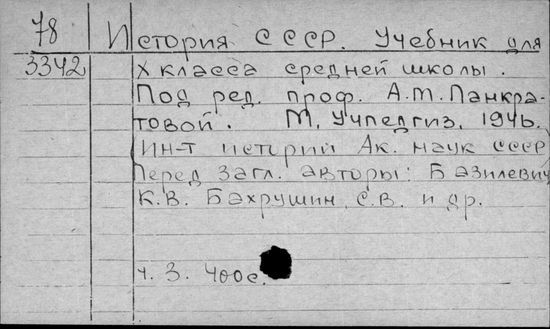 78 История СССР. Учебник для
3342 X класса средней школы.
Под ред. проф. А.М. Панкра-
товой. М, Учпедгиз, 1946.
(Ин-т истории Ак. наук СССР
Перед загл. авторы: Базилевич
К.В. Бахрушин, С.В. и др.
ч. 3. 400с.